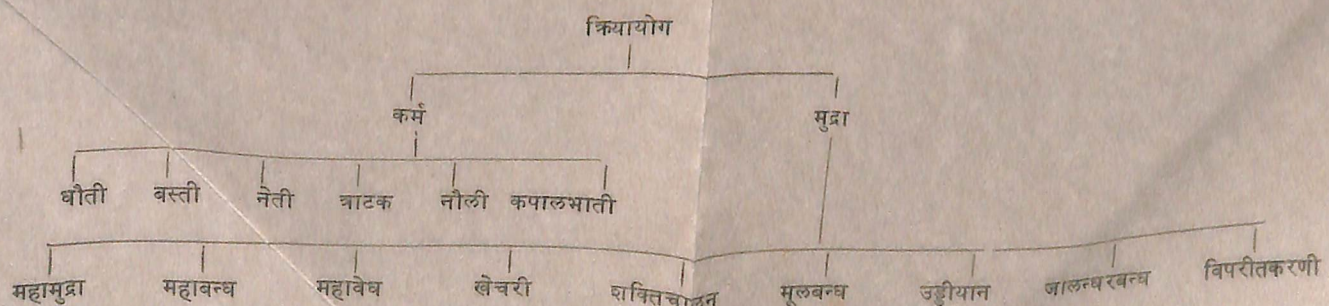 क्रियायोग
कर्म मुद्रा
धौती बस्ती नेती त्राटक नौली कपालभाती
महामुद्रा महाबन्ध महावेध खेचरी शक्तिचालन मूलबन्ध उड्डीयान जालन्धरबन्ध विपरीतकरणी